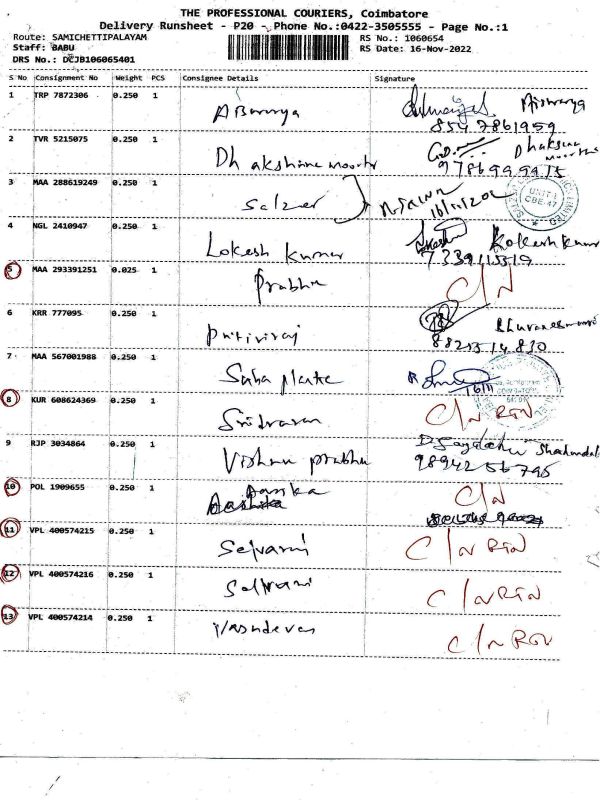 THE PROFESSIONAL COURIERS, Coimbatore
Delivery Runsheet - P20 - Phone No.:0422-3505555 - Page No.:1
Route: SAMICHETTIPALAYAM RS No.: 1060654
Staff: BABU RS Date: 16-Nov-2022
DRS No.: DCJB106065401
S No Consignment No Weight PCS Consignee Details Signature
1 TRP 7872306 0.250 1 Aiswarya
8547861959
2 TVR 5215075 0.250 1 Dhakshina moorthi Dhakshina moorthi
3 MAA 288619249 0.250 1 Salzer
UNIT I
CBE-47
4 NGL 2410947 0.250 1 Lokesh Kumar
7339115519
5 MAA 293391251 0.025 1 Prabhu C/N
6 KRR 777095 0.250 1 Pritiviraj
7 MAA 567001988 0.250 1 16/11
8 KUR 608624369 0.250 1 C/N RTN
9 RJP 3034864 0.250 1 Vishnu prabhu
9894256795
10 POL 1909655 0.250 1 C/N
11 VPL 400574215 0.250 1 Selvarani C/N RTN
12 VPL 400574216 0.250 1 C/N RTN
13 VPL 400574214 0.250 1 Vasudevan C/N RTN